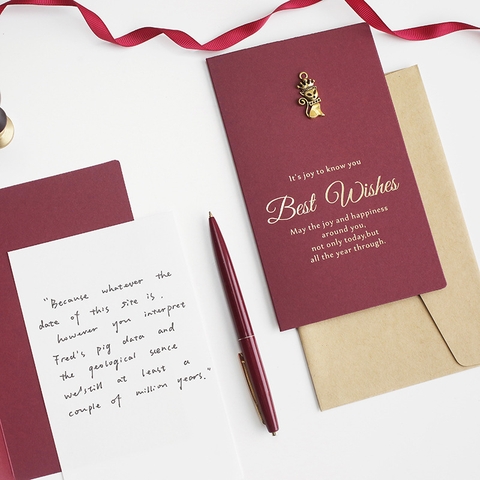 It's joy to know you
Best Wishes
May the joy and happiness
around you,
not only today,but
all the year through.
"Because whatever the
date of this site is.
however you interpret
Fred's pig data and
the geological sience
we/still at least a
couple of million years."